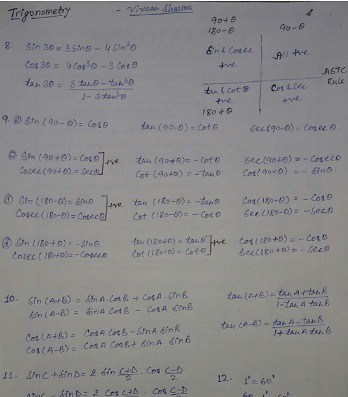 Trigonometry - Vivaan Sharma
90+θ
180-θ
90-θ
8. Sin3θ = 3Sinθ - 4Sin³θ
Cos3θ = 4Cos³θ - 3Cosθ
tan3θ = 3tanθ - tan³θ / 1-3tan²θ
Sin & Cosec +ve
All +ve
ASTC Rule
tan & Cot +ve
180+θ
Cos & Sec +ve
9. @ Sin(90-θ) = Cosθ tan(90-θ) = Cotθ Sec(90-θ) = Cosecθ
Sin(90+θ) = Cosθ ] +ve tan(90+θ) = -Cotθ Sec(90+θ) = -Cosecθ
Cosec(90+θ) = Secθ Cot(90+θ) = -tanθ Cos(90+θ) = -Sinθ
Sin(180-θ) = Sinθ ] +ve tan(180-θ) = -tanθ Cos(180-θ) = -Cosθ
Cosec(180-θ) = Cosecθ Cot(180-θ) = -Cotθ Sec(180-θ) = -Secθ
Sin(180+θ) = -Sinθ tan(180+θ) = tanθ ] +ve Cos(180+θ) = -Cosθ
Cosec(180+θ) = -Cosecθ Cot(180+θ) = Cotθ Sec(180+θ) = -Secθ
10. Sin(A+B) = SinA.CosB + CosA.SinB tan(A+B) = tanA+tanB / 1-tanA tanB
Sin(A-B) = SinA CosB - CosA SinB
Cos(A+B) = CosA CosB - SinA SinB tan(A-B) = tanA-tanB / 1+tanA tanB
Cos(A-B) = CosA CosB + SinA SinB
11. SinC + SinD = 2 Sin C+D/2 . Cos C-D/2 12. 1° = 60'
SinC - SinD = 2 Cos C+D . C-D